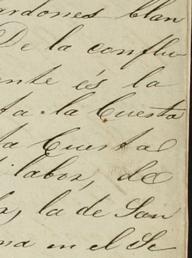 ardones blan
De la conflu
ente és la
ta la Cuesta
ta Cuesta
labor, de
la de San
na en el Se